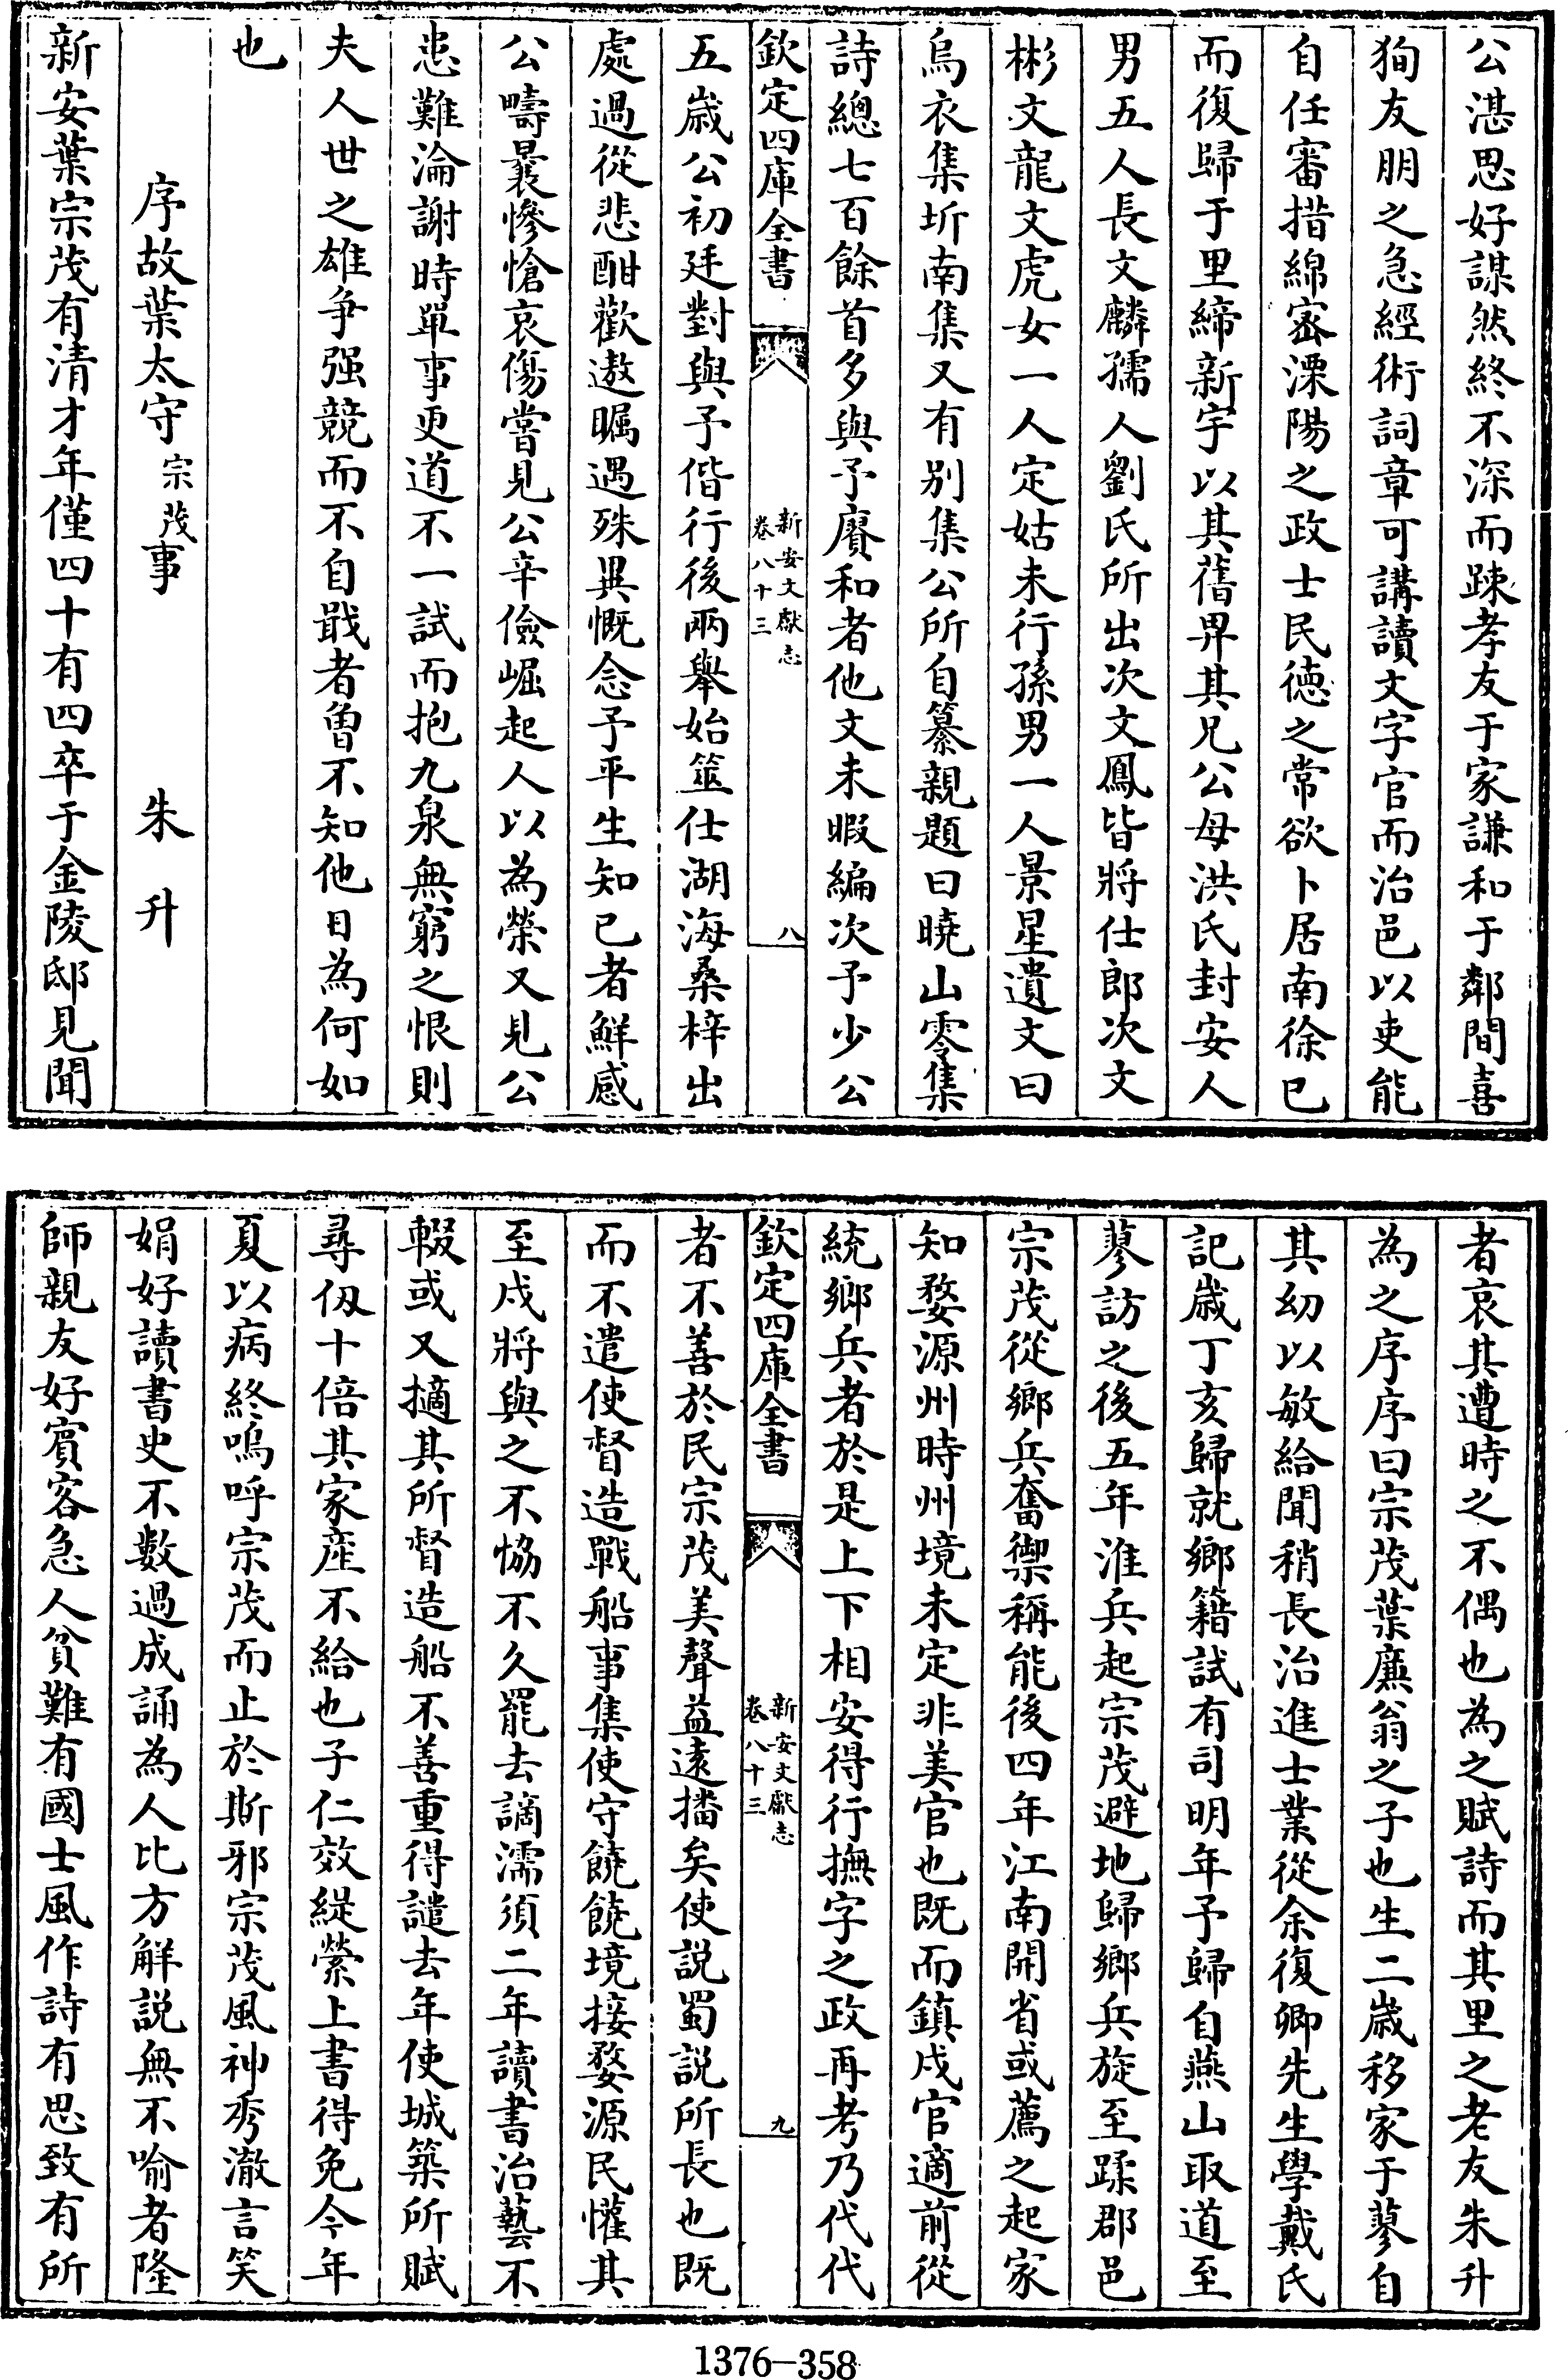 公湛思好謀然終不深而踈孝友于家謙和于鄰間喜
狥友朋之急經術詞章可講讀文字官而治邑以吏能
自任審措綿宻溧陽之政士民徳之常欲卜居南徐已
而復歸于里締新宇以其舊畀其兄公母洪氏封安人
男五人長文麟孺人劉氏所出次文鳳皆將仕郎次文
彬文龍文虎女一人定姑未行孫男一人景星遺文曰
烏衣集圻南集又有别集公所自纂親題曰曉山零集
詩總七百餘首多與予賡和者他文未暇編次予少公
欽定四庫全書
新安文獻志
卷八十三
八
五歲公初廷對與予偕行後兩舉始筮仕湖海桑梓出
處過從悲酣歡遨矚遇殊異慨念予平生知已者鮮感
公疇曩慘愴哀傷嘗見公辛儉崛起人以為榮又見公
患難淪謝時單事更道不一試而抱九泉無窮之恨則
夫人世之雄争强競而不自戢者曽不知他日為何如
也
序故葉太守宗茂事 朱升
新安葉宗茂有清才年僅四十有四卒于金陵邸見聞
者哀其遭時之不偶也為之賦詩而其里之老友朱升
為之序序曰宗茂葉廉翁之子也生二歲移家于蓼自
其幼以敏給聞稍長治進士業從余復卿先生學戴氏
記歲丁亥歸就鄉籍試有司明年予歸自燕山取道至
蓼訪之後五年淮兵起宗茂避地歸鄉兵旋至蹂郡邑
宗茂從鄉兵奮禦稱能後四年江南開省或薦之起家
知婺源州時州境未定非美官也既而鎮戍官適前從
統鄉兵者於是上下相安得行撫字之政再考乃代代
欽定四庫全書
新安文獻志
卷八十三
九
者不善於民宗茂美聲益遠播矣使説蜀説所長也既
而不遣使督造戰船事集使守饒饒境接婺源民懽其
至戍將與之不恊不久罷去謫濡須二年讀書治藝不
輟或又摘其所督造船不善重得譴去年使城築所賦
尋仭十倍其家産不給也子仁效緹縈上書得免今年
夏以病終嗚呼宗茂而止於斯邪宗茂風神秀澈言笑
娟好讀書史不數過成誦為人比方解説無不喻者隆
師親友好賓客急人貧難有國士風作詩有思致有所
1376-358